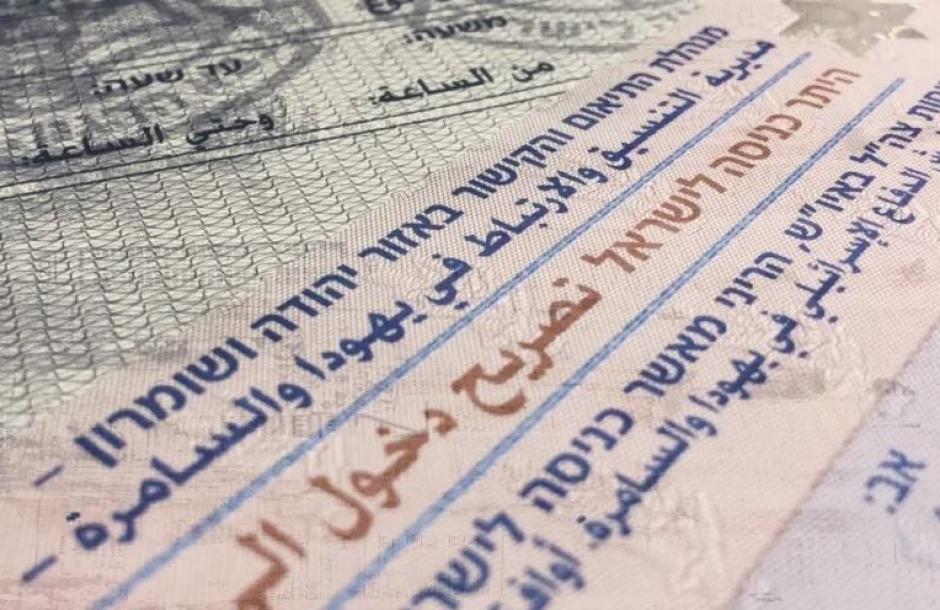 משעה:
من الساعة:
עד שעה:
وحتي الساعة:
מנהלת התיאום והקישור באזור יהודה ושומרון -
مديرية التنسيق والارتباط في يهودا والسامرة -
היתר כניסה לישראל تصريح دخول
צה"ל באיו"ש, הריני מאשר כניסה לישר
الدفاع الإسرائيلي في يهودا والسامرة. أوافق
אב: